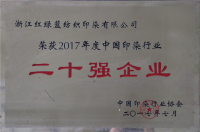 浙江红绿蓝纺织印染有限公司
荣获2017年度中国印染行业
二十强企业
中国印染行业协会
二〇一七年七月